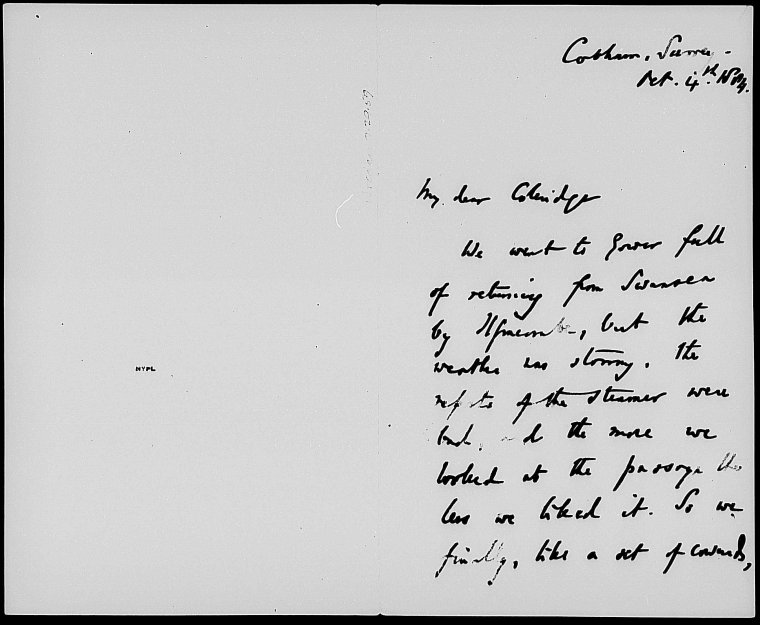 Cobham, Surrey.
Oct. 4th
My dear Coleridge
We went to Gower full
of returning from Swansea
by Ilfracombe, but the
weather was stormy, the
of the steamer were
bad, and the more we
looked at the passage the
less we liked it. So we
finally, like a set of cowards,
NYPL